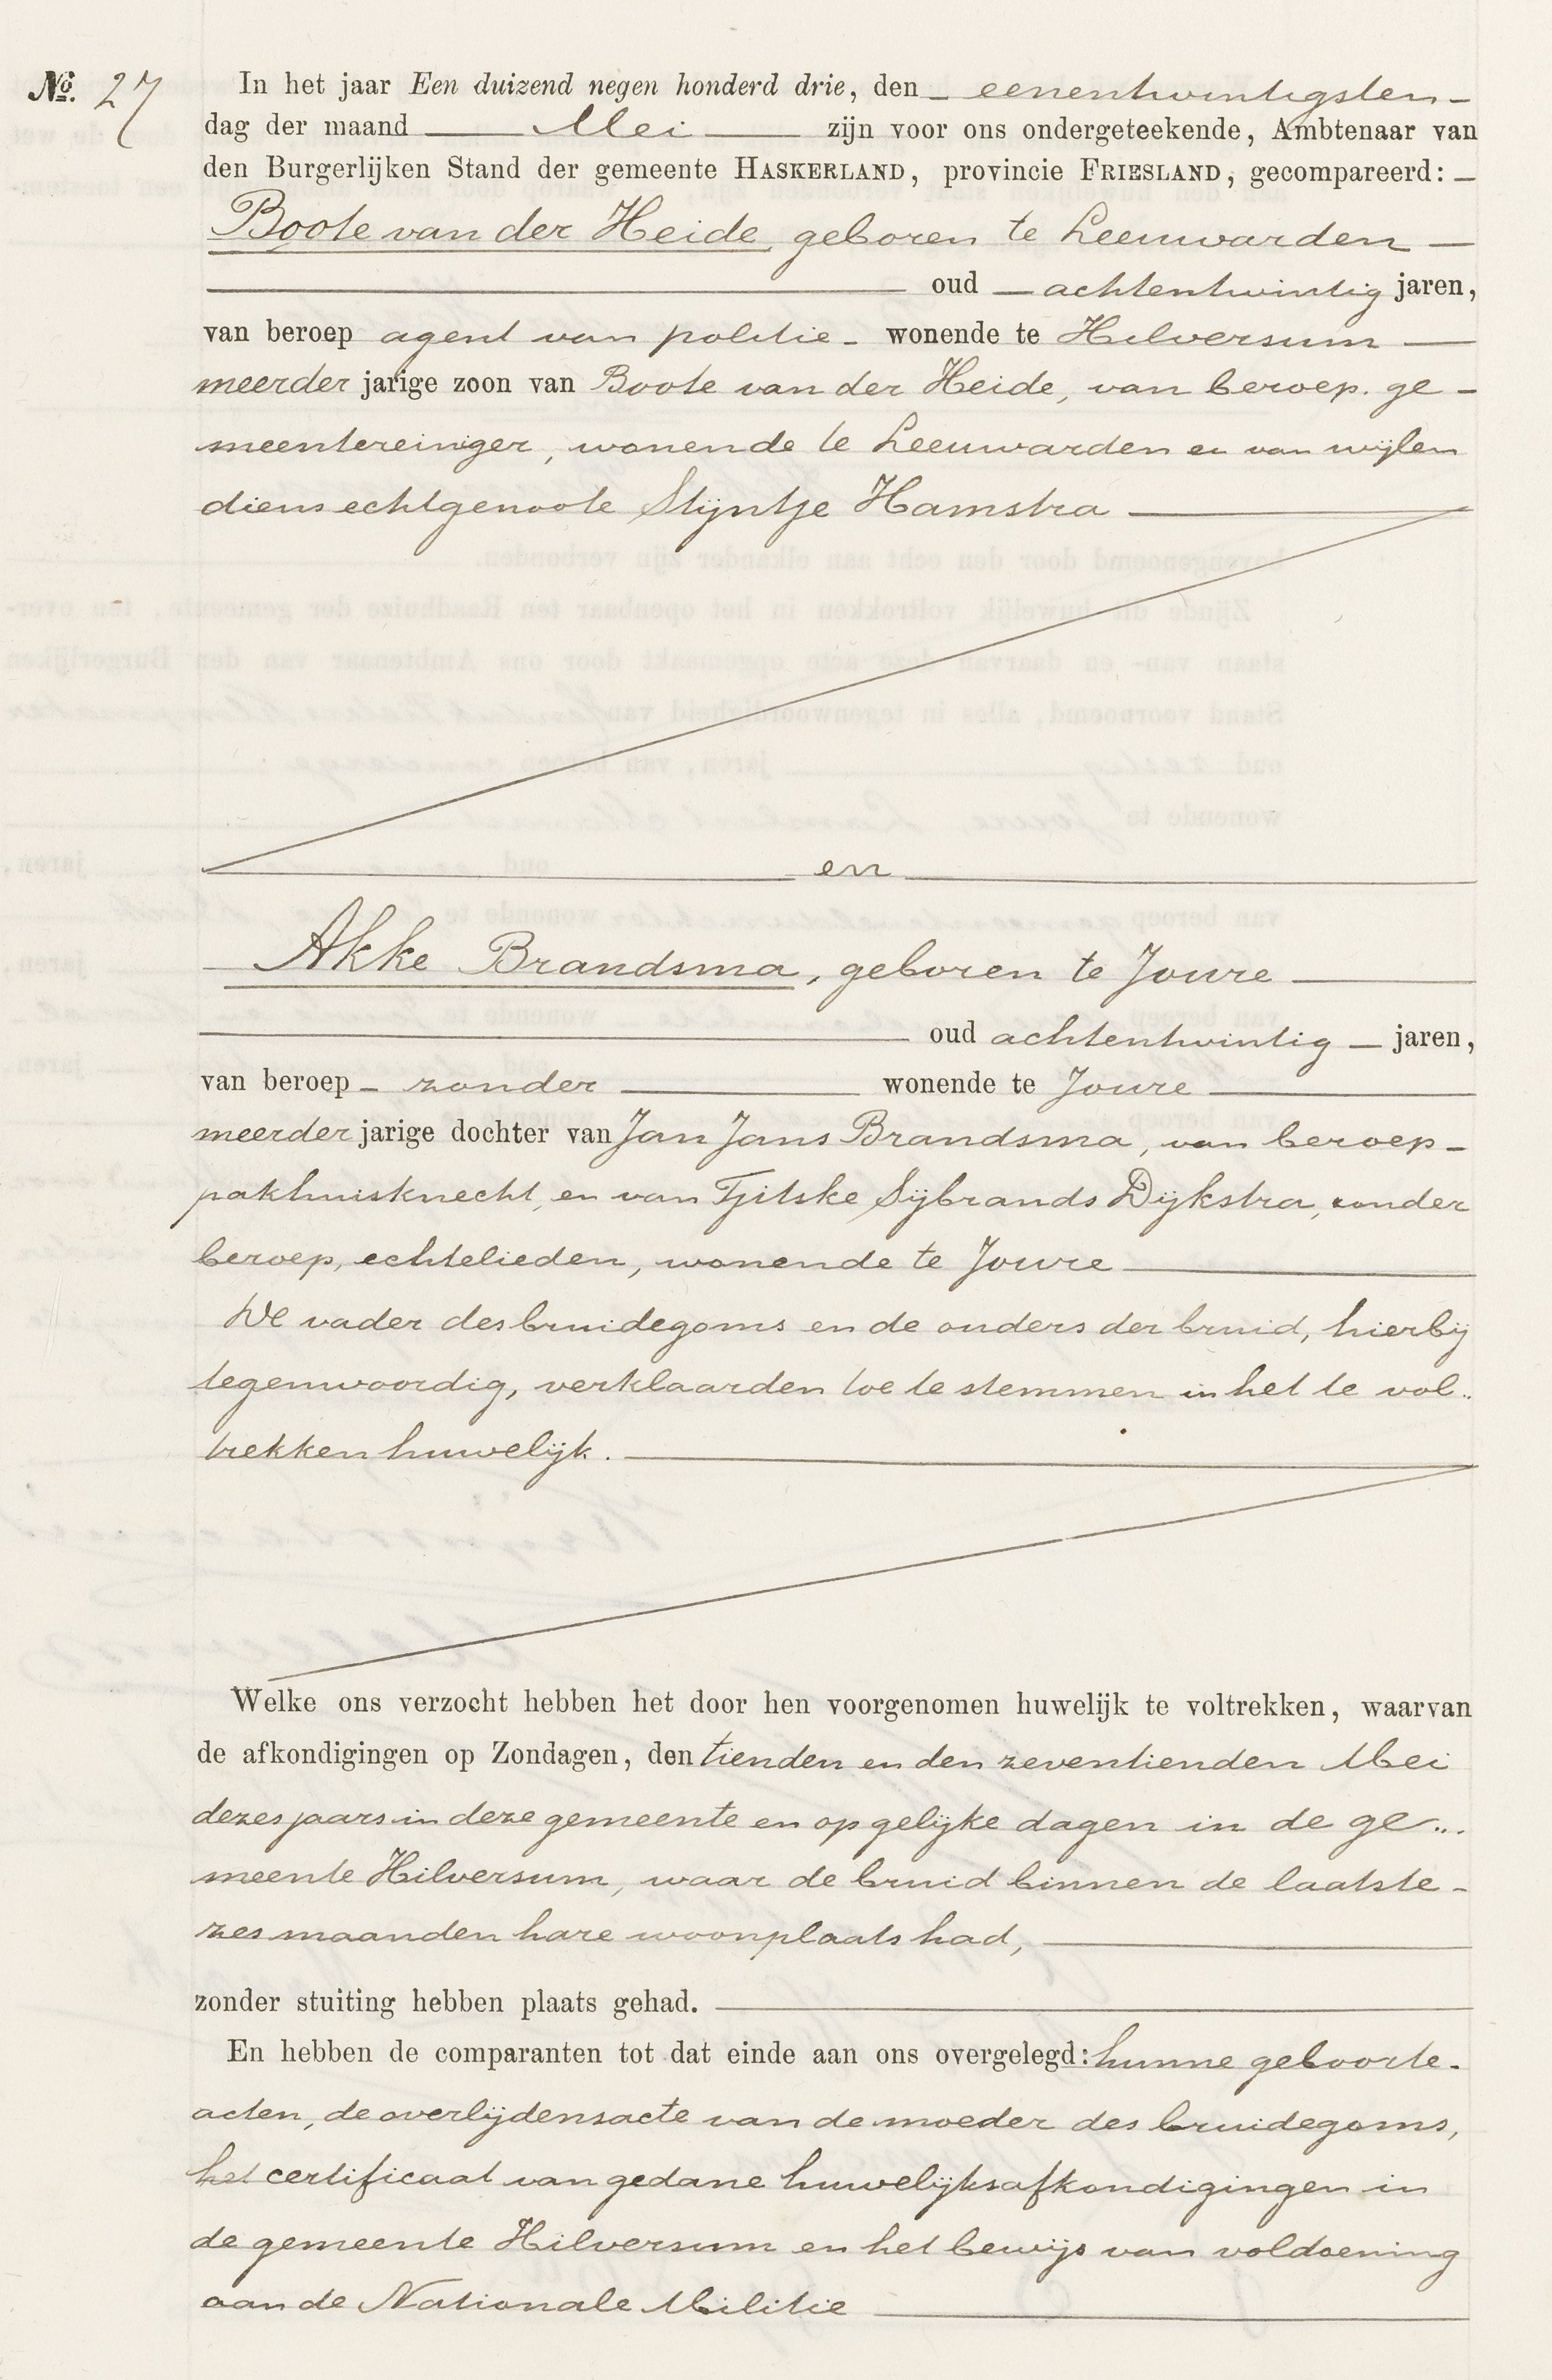 No. 27
In het jaar Een duizend negen honderd drie, den eenentwintigsten
dag der maand Mei zijn voor ons ondergeteekende, Ambtenaar van
den Burgerlijken Stand der gemeente HASKERLAND, provincie FRIESLAND, gecompareerd:
Boote van der Heide, geboren te Leeuwarden
oud achtentwintig jaren,
van beroep agent van politie wonende te Hilversum
meerder jarige zoon van Boote van der Heide, van beroep ge-
meentereiniger, wonende te Leeuwarden en van wijlen
diens echtgenoote Stijntje Hamstra
en
Akke Brandsma, geboren te Joure
oud achtentwintig jaren,
van beroep zonder wonende te Joure
meerder jarige dochter van Jan Jans Brandsma, van beroep
pakhuisknecht, en van Tjitske Sijbrands Dijkstra, zonder
beroep, echtelieden, wonende te Joure
De vader des bruidegoms en de ouders der bruid, hierbij
tegenwoordig, verklaarden toe te stemmen in het te vol-
trekken huwelijk.
Welke ons verzocht hebben het door hen voorgenomen huwelijk te voltrekken, waarvan
de afkondigingen op Zondagen, den tienden en den zeventienden Mei
dezes jaars in deze gemeente en op gelijke dagen in de ge-
meente Hilversum, waar de bruid binnen de laatste
zes maanden hare woonplaats had,
zonder stuiting hebben plaats gehad.
En hebben de comparanten tot dat einde aan ons overgelegd: hunne geboorte-
acten, de overlijdensacte van de moeder des bruidegoms,
het certificaat van gedane huwelijksafkondigingen in
de gemeente Hilversum en het bewijs van voldoening
aan de Nationale Militie